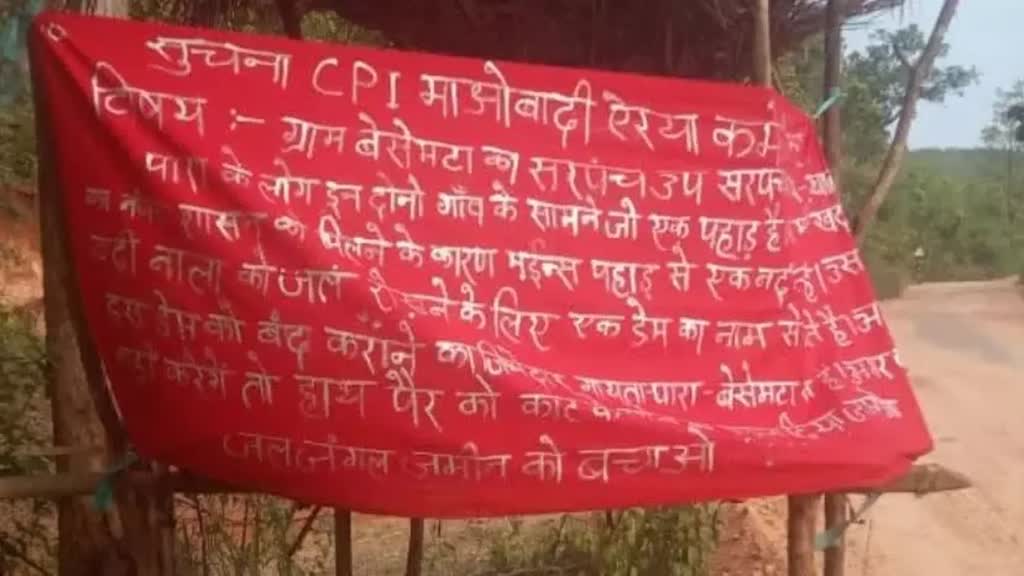 सुचना CPI माओवादी ऐरिया कमे
विषय :- ग्राम बेसेमटा का सरपंच उप सरपंच
पारा के लोग इन दोनो गाँव के सामने जो एक पहाड़ है
शासन को मिलने के कारण मईन्स पहाड़ से एक नदी है। उस
नदी नाला को जल रोकने के लिए एक डेम का नाम सेते है।
डेम को बंद कराने का गायतापारा - बेसेमटा
नही करेगें तो हाथ पैर को काट
जल जंगल जमीन को बचाओ